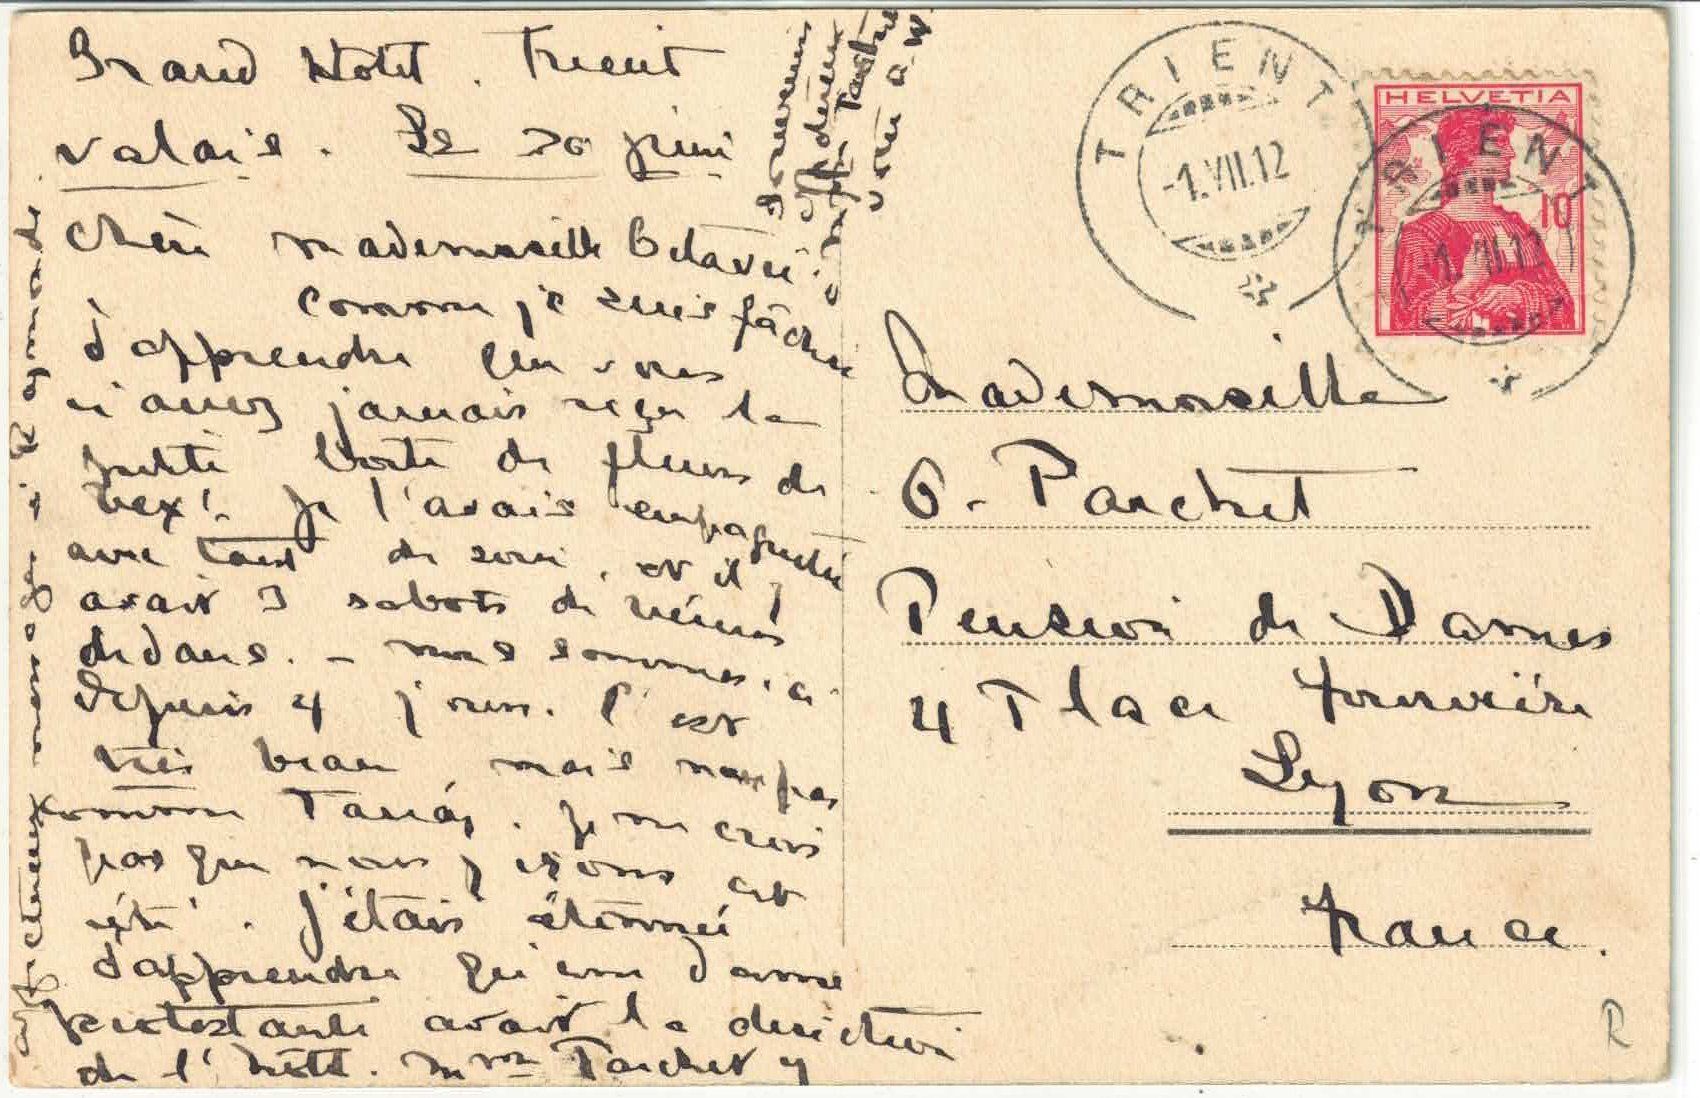 Grand Hotel. Trient
Valais. Le 30 juin
Chère Mademoiselle Octavie.
Comme je suis fâchée
d'apprendre que vous
n'avez jamais reçu la
petite boîte de fleurs de
Bex! Je l'avais empaquetée
avec tant de soin, et il y
avait 3 sabots de Vénus
dedans. - nous sommes ici
depuis 4 jours. C'est
très beau, mais non pas
comme Tanay. Je ne crois
pas que nous y irons cet
été. J'étais étonnée
d'apprendre qu'une dame
protestante avait la direction
de l'hôtel. Mme Parchet y
affectueux message à Raymonde.
Souvenirs
affectueux
TRIENT
-1.VII.12
HELVETIA
10
TRIENT
-1.VII.12
Mademoiselle
O. Parchet
Pension de Dames
4 Place Fourvière
Lyon
France.
R